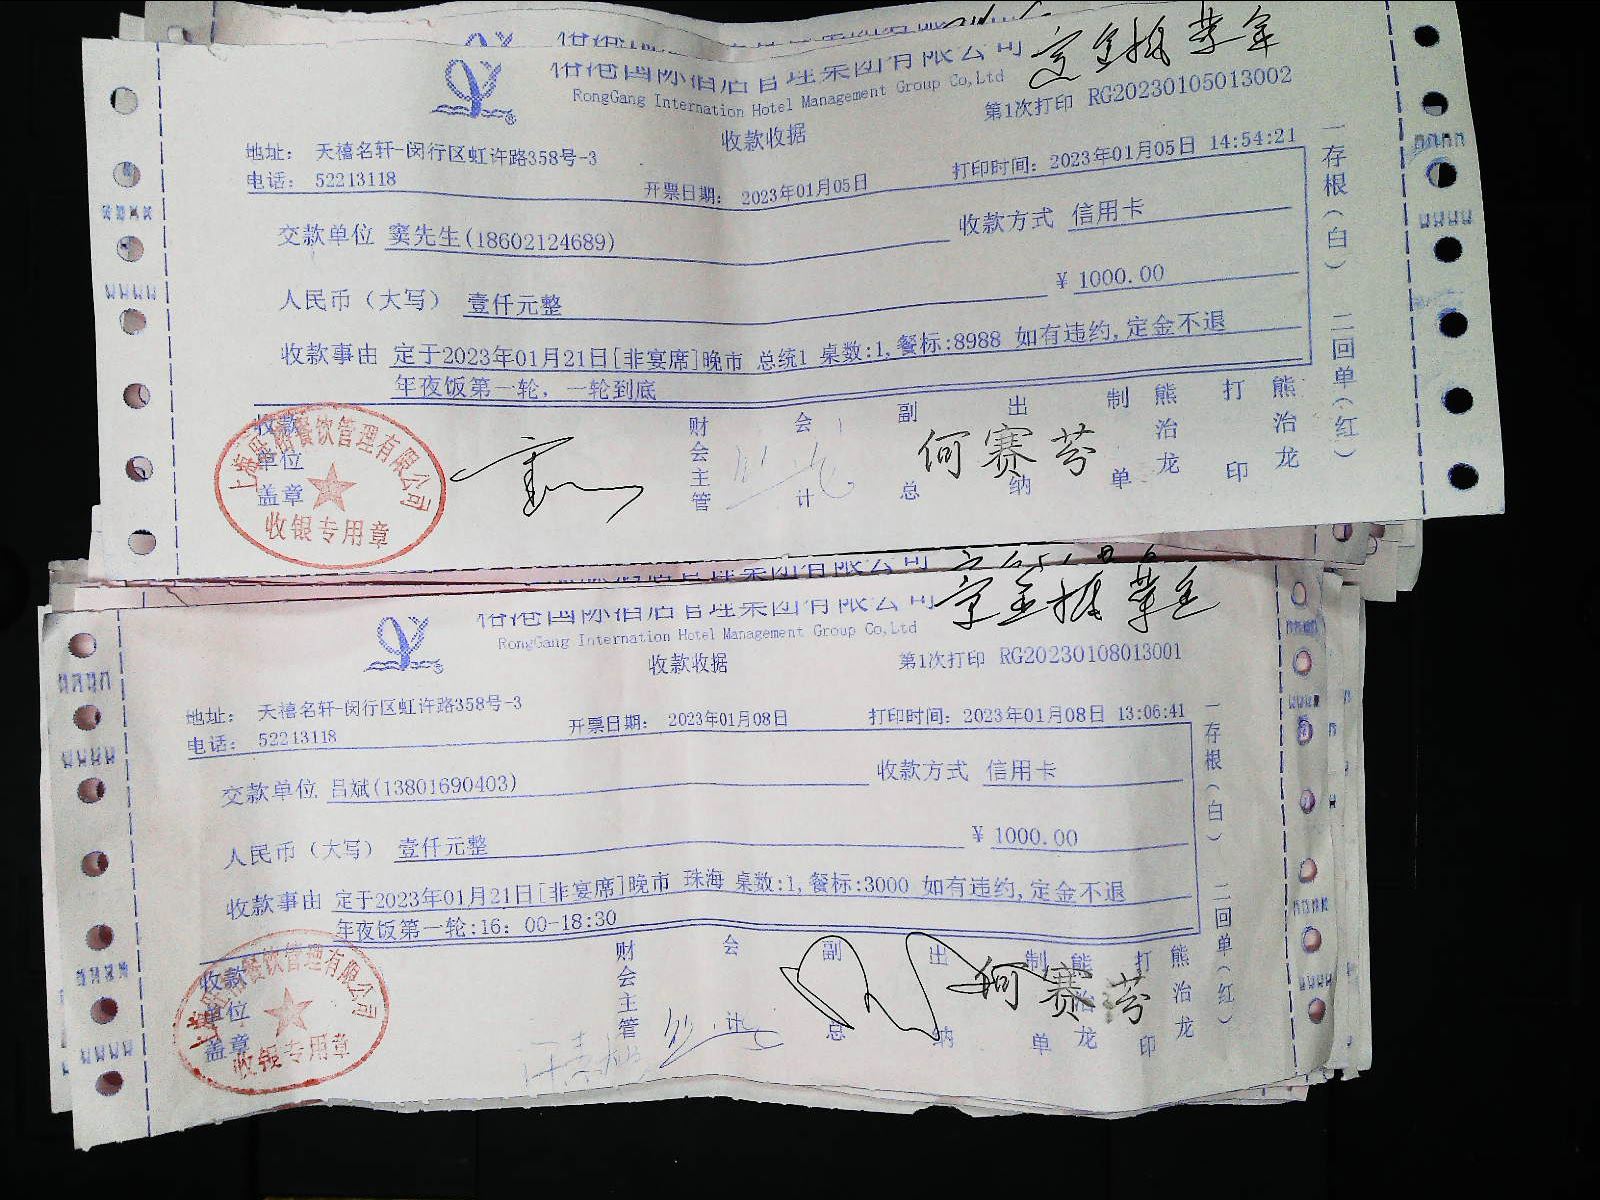 定金抵業金
俗港国际酒店管理集团有限公司
RongGang Internation Hotel Management Group Co,Ltd
第1次打印 RG20230105013002
收款收据
地址: 天禧名轩-闵行区虹许路358号-3
电话: 52213118
开票日期: 2023年01月05日
打印时间: 2023年01月05日 14:54:21
交款单位 窦先生(18602124689)
收款方式 信用卡
人民币（大写） 壹仟元整
¥ 1000.00
收款事由 定于2023年01月21日[非宴席]晚市 总统1 桌数:1,餐标:8988 如有违约,定金不退
年夜饭第一轮，一轮到底
收款单位盖章
餐饮管理有限公司
收银专用章
财会主管
会计
副总
出纳
何赛芬
制单
熊治龙
打印
熊治龙
一存根（白） 二回单（红）
国际酒店管理集团有限公司
RongGang Internation Hotel Management Group Co,Ltd
收款收据
第1次打印 RG20230108013001
地址: 天禧名轩-闵行区虹许路358号-3
电话: 52213118
开票日期: 2023年01月08日
打印时间: 2023年01月08日 13:06:41
交款单位 吕斌(13801690403)
收款方式 信用卡
人民币（大写） 壹仟元整
¥ 1000.00
收款事由 定于2023年01月21日[非宴席]晚市 珠海 桌数:1,餐标:3000 如有违约,定金不退
年夜饭第一轮:16: 00-18:30
收款单位盖章
餐饮管理有限公司
收银专用章
财会主管
会计
副总
出纳
何赛芬
制单
熊治龙
打印
熊治龙
一存根（白） 二回单（红）